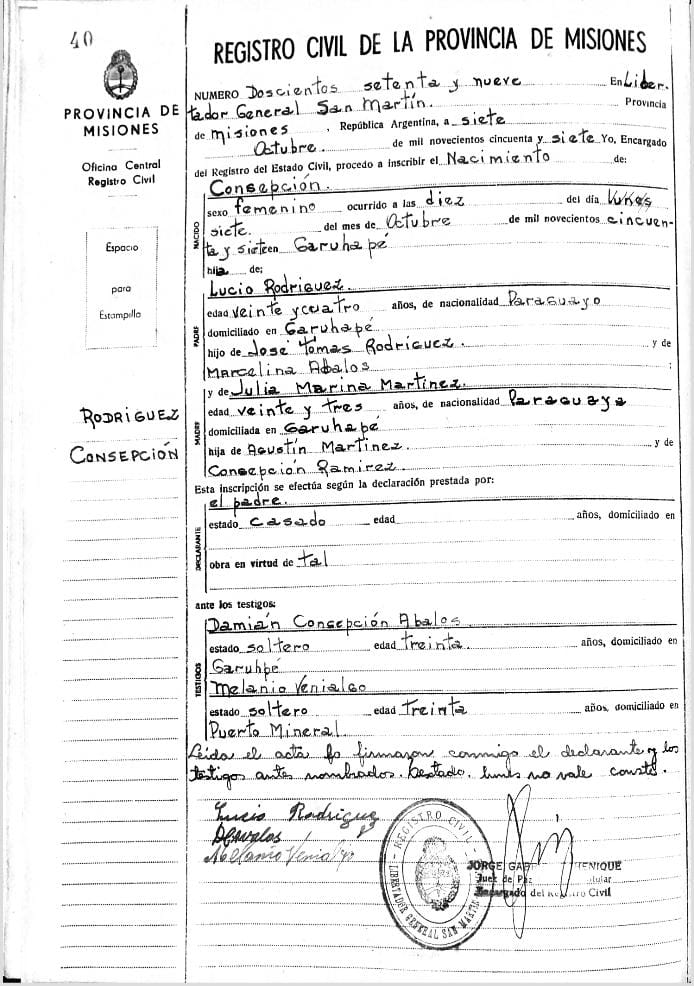 40
REGISTRO CIVIL DE LA PROVINCIA DE MISIONES
PROVINCIA DE
MISIONES
Oficina Central
Registro Civil
Espacio
para
Estampilla
RODRIGUEZ
CONSEPCIÓN
NUMERO Doscientos setenta y nueve En Liber-
tador General San Martín. Provincia
de Misiones, República Argentina, a siete
Octubre. de mil novecientos cincuenta y siete Yo, Encargado
del Registro del Estado Civil, procedo a inscribir el Nacimiento de:
NACIDO
Consepción.
sexo femenino ocurrido a las diez del día lunes
siete. del mes de Octubre de mil novecientos cincuen-
ta y siete en Garuhapé
hija de:
PADRE
Lucio Rodriguez.
edad veinte y cuatro años, de nacionalidad Paraguayo
domiciliado en Garuhapé
hijo de José Tomas Rodriguez. y de
Marcelina Abalos ;
MADRE
y de Julia Marina Martinez.
edad veinte y tres años, de nacionalidad Paraguaya
domiciliada en Garuhapé
hija de Agustín Martinez. y de
Consepción Ramirez.
Esta inscripción se efectúa según la declaración prestada por:
DECLARANTE
el padre.
estado casado edad años, domiciliado en
obra en virtud de tal
ante los testigos:
TESTIGOS
Damián Consepción Abalos
estado soltero edad treinta. años, domiciliado en
Garuhpé
Melanio Venialgo
estado soltero edad treinta años, domiciliado en
Puerto Mineral
Leida el acta fo firmaron conmigo el declarante y los
testigos antes nombrados. Testado. lunes no vale conste.
Lucio Rodriguez
Melanio Venialgo
REGISTRO CIVIL
LIBERTADOR GENERAL SAN MARTIN
JORGE GAB HENIQUE
Juez de Paz Titular
Encargado del Registro Civil